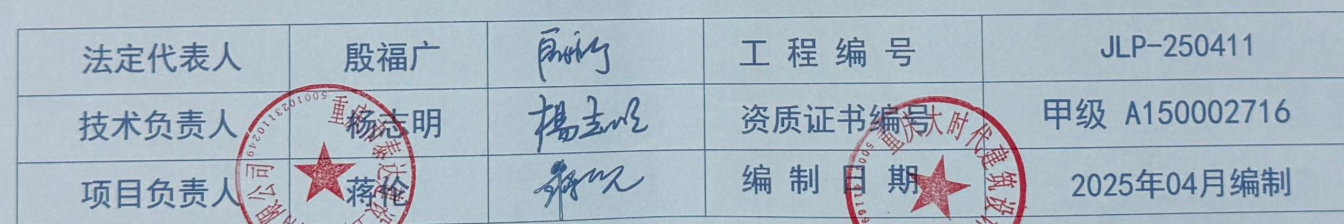 法定代表人 殷福广 工程编号 JLP-250411
技术负责人 杨志明 杨志明 资质证书编号 甲级 A150002716
项目负责人 蒋伦 编制日期 2025年04月编制
重庆 泰达建设
限公司
重庆大时代建筑设